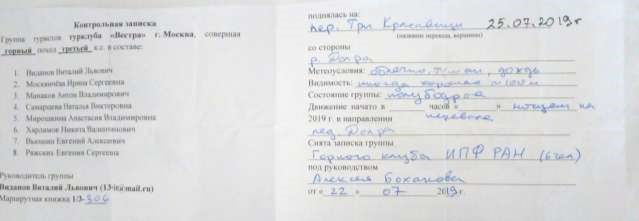 Контрольная записка
Группа туристов турклуба «Вестра» г. Москва, совершая
горный поход третьей к.с. в составе:
1. Виданов Виталий Львович
2. Москвичёва Ирина Сергеевна
3. Манаков Антон Владимирович
4. Самарцева Наталья Викторовна
5. Мирошкина Анастасия Владимировна
6. Харламов Никита Валентинович
7. Евгений Алексеевич
8. Ряжских Евгения Сергеевна
Руководитель группы
Виданов Виталий Львович (13vit@mail.ru)
Маршрутная книжка 1/3-306
поднялась на:
пер. Три Красавицы 25.07.2019г
(название перевала, вершины)
со стороны
р. Допра
Метеоусловия: облачно, туман, дождь
Видимость: иногда хорошая
Состояние группы: полубодрое
Движение начато в часов " " ночуем на перевале
2019 г. в направлении
лед. Допра
Снята записка группы
Горного клуба ИПФ РАН (6 чел)
под руководством
Алексея
от « 22 » 07 2019г.